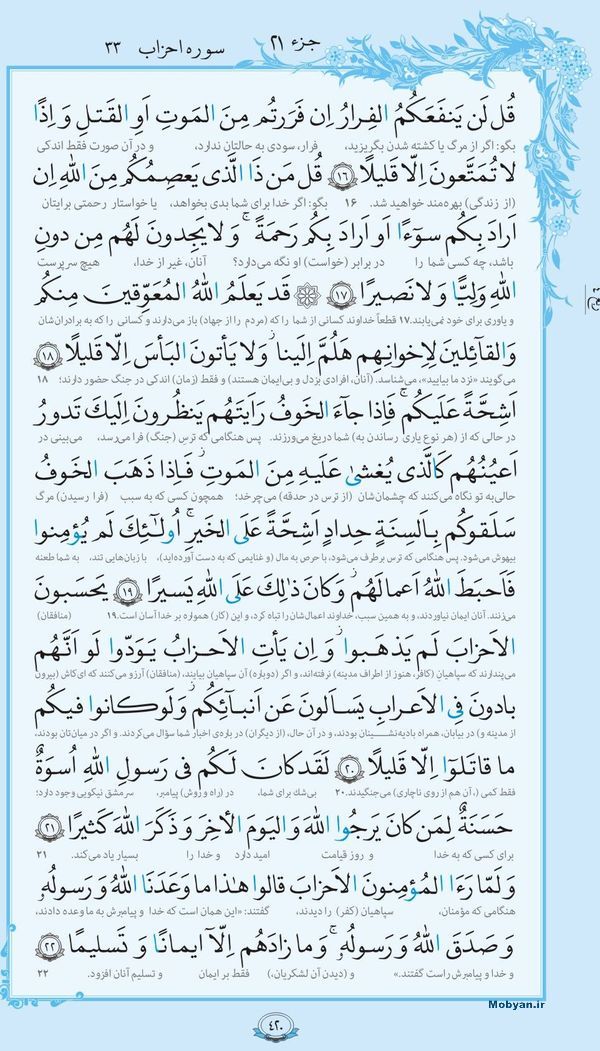 جزء ۲۱
سوره احزاب ۳۳
قُل لَن يَنفَعَكُمُ الفِرارُ اِن فَرَرتُم مِنَ المَوتِ اَوِ القَتلِ وَ اِذًا
بگو: اگر از مرگ یا کشته شدن بگریزید، فرار، سودی به حالتان ندارد، و در آن صورت فقط اندکی
لا تُمَتَّعونَ اِلّا قَليلًا ١٦ قُل مَن ذَا الَّذى يَعصِمُكُم مِنَ اللهِ اِن
(از زندگی) بهره‌مند خواهید شد. ۱۶ بگو: اگر خدا برای شما بدی بخواهد، یا خواستار رحمتی برایتان
اَرادَ بِكُم سوٓءًا اَو اَرادَ بِكُم رَحمَةً ۚ وَ لا يَجِدونَ لَهُم مِن دونِ
باشد، چه کسی شما را در برابر (خواست) او نگه می‌دارد؟ آنان، غیر از خدا، هیچ سرپرست
اللهِ وَلِيًّا وَ لا نَصيرًا ١٧ ۞ قَد يَعلَمُ اللهُ المُعَوِّقينَ مِنكُم
و یاوری برای خود نمی‌یابند. ۱۷ قطعاً خداوند کسانی از شما را که (مردم را از جهاد) باز می‌دارند و کسانی را که به برادران‌شان
وَ القآئِلينَ لِاِخوانِهِم هَلُمَّ اِلَينا ۖ وَ لا يَأتونَ البَأسَ اِلّا قَليلًا ١٨
می‌گویند «نزد ما بیایید»، می‌شناسد. (آنان، افرادی بزدل و بی‌ایمان هستند) و فقط (زمان) اندکی در جنگ حضور دارند؛ ۱۸
اَشِحَّةً عَلَيكُم ۖ فَاِذا جآءَ الخَوفُ رَاَيتَهُم يَنظُرونَ اِلَيكَ تَدورُ
در حالی که از (هر نوع یاری رساندن به) شما دریغ می‌ورزند. پس هنگامی که ترس (جنگ) فرا می‌رسد، می‌بینی در
اَعيُنُهُم كَالَّذى يُغشىٰ عَلَيهِ مِنَ المَوتِ ۖ فَاِذا ذَهَبَ الخَوفُ
حالی به تو نگاه می‌کنند که چشمان‌شان (از ترس در حدقه) می‌چرخد؛ همچون کسی که به سبب (فرا رسیدن) مرگ
سَلَقوكُم بِاَلسِنَةٍ حِدادٍ اَشِحَّةً عَلَى الخَيرِ ۚ اُولٰٓئِكَ لَم يُؤمِنوا
بیهوش می‌شود. پس هنگامی که ترس برطرف می‌شود، با حرص به مال (و غنایمی که به دست آورده‌اید)، با زبان‌هایی تند، به شما طعنه
فَاَحبَطَ اللهُ اَعمالَهُم ۚ وَ كانَ ذٰلِكَ عَلَى اللهِ يَسيرًا ١٩ يَحسَبونَ
می‌زنند. آنان ایمان نیاوردند، و به همین سبب، خداوند اعمال‌شان را تباه کرد، و این (کار) همواره بر خدا آسان است. ۱۹ (منافقان)
الاَحزابَ لَم يَذهَبوا ۖ وَ اِن يَأتِ الاَحزابُ يَوَدّوا لَو اَنَّهُم
می‌پندارند که سپاهیان (کافر، هنوز از اطراف مدینه) نرفته‌اند، و اگر (دوباره) آن سپاهیان بیایند، (منافقان) آرزو می‌کنند که ای‌کاش (بیرون
بادونَ فِى الاَعرابِ يَسـَٔلونَ عَن اَنبآئِكُم ۖ وَ لَو كانوا فيكُم
از مدینه و) در بیابان، همراه بادیه‌نشینان بودند، و در آن حال، (از دیگران) در باره‌ی اخبار شما سؤال می‌کردند. و اگر در میان‌تان بودند،
ما قاتَلوا اِلّا قَليلًا ٢٠ لَقَد كانَ لَكُم فى رَسولِ اللهِ اُسوَةٌ
فقط کمی (، آن هم از روی ناچاری) می‌جنگیدند. ۲۰ بی‌شک برای شما، در (راه و روش) پیامبر، سرمشق نیکویی وجود دارد؛
حَسَنَةٌ لِمَن كانَ يَرجُوا اللهَ وَ اليَومَ الأخِرَ وَ ذَكَرَ اللهَ كَثيرًا ٢١
برای کسی که به خدا و روز قیامت امید دارد و خدا را بسیار یاد می‌کند. ۲۱
وَ لَمّا رَءَا المُؤمِنونَ الاَحزابَ قالوا هٰذا ما وَعَدَنَا اللهُ وَ رَسولُهٗ
هنگامی که مؤمنان، سپاهیان (کفر) را دیدند، گفتند: «این همان است که خدا و پیامبرش به ما وعده دادند،
وَ صَدَقَ اللهُ وَ رَسولُهٗ ۚ وَ ما زادَهُم اِلّآ ايمانًا وَ تَسليمًا ٢٢
و خدا و پیامبرش راست گفتند.» و (دیدن آن لشکریان،) فقط بر ایمان و تسلیم آنان افزود. ۲۲
Mobyan.ir
۴۲۰